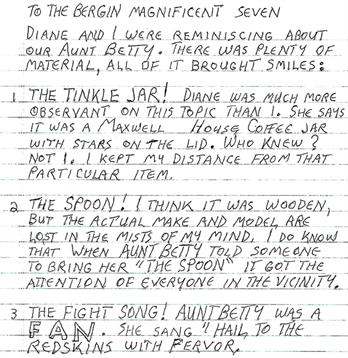 TO THE BERGIN MAGNIFICENT SEVEN
DIANE AND I WERE REMINISCING ABOUT
OUR AUNT BETTY. THERE WAS PLENTY OF
MATERIAL, ALL OF IT BROUGHT SMILES:
1 THE TINKLE JAR! DIANE WAS MUCH MORE
OBSERVANT ON THIS TOPIC THAN I. SHE SAYS
IT WAS A MAXWELL HOUSE COFFEE JAR
WITH STARS ON THE LID. WHO KNEW?
NOT I. I KEPT MY DISTANCE FROM THAT
PARTICULAR ITEM.
2 THE SPOON! I THINK IT WAS WOODEN,
BUT THE ACTUAL MAKE AND MODEL ARE
LOST IN THE MISTS OF MY MIND. I DO KNOW
THAT WHEN AUNT BETTY TOLD SOMEONE
TO BRING HER "THE SPOON" IT GOT THE
ATTENTION OF EVERYONE IN THE VICINITY.
3 THE FIGHT SONG! AUNT BETTY WAS A
FAN. SHE SANG "HAIL TO THE
REDSKINS WITH FERVOR.